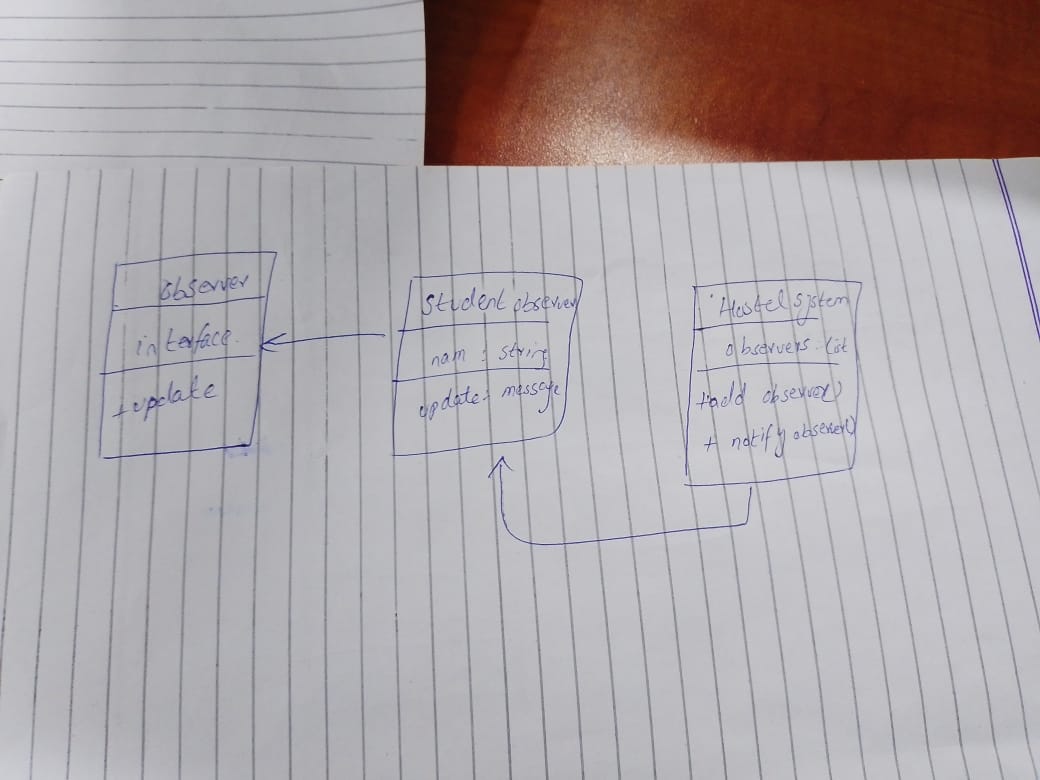 observer
interface.
+update
student observer
nam : string
update: message
Hostel system
observers. list
+add observer()
+ notify observer()